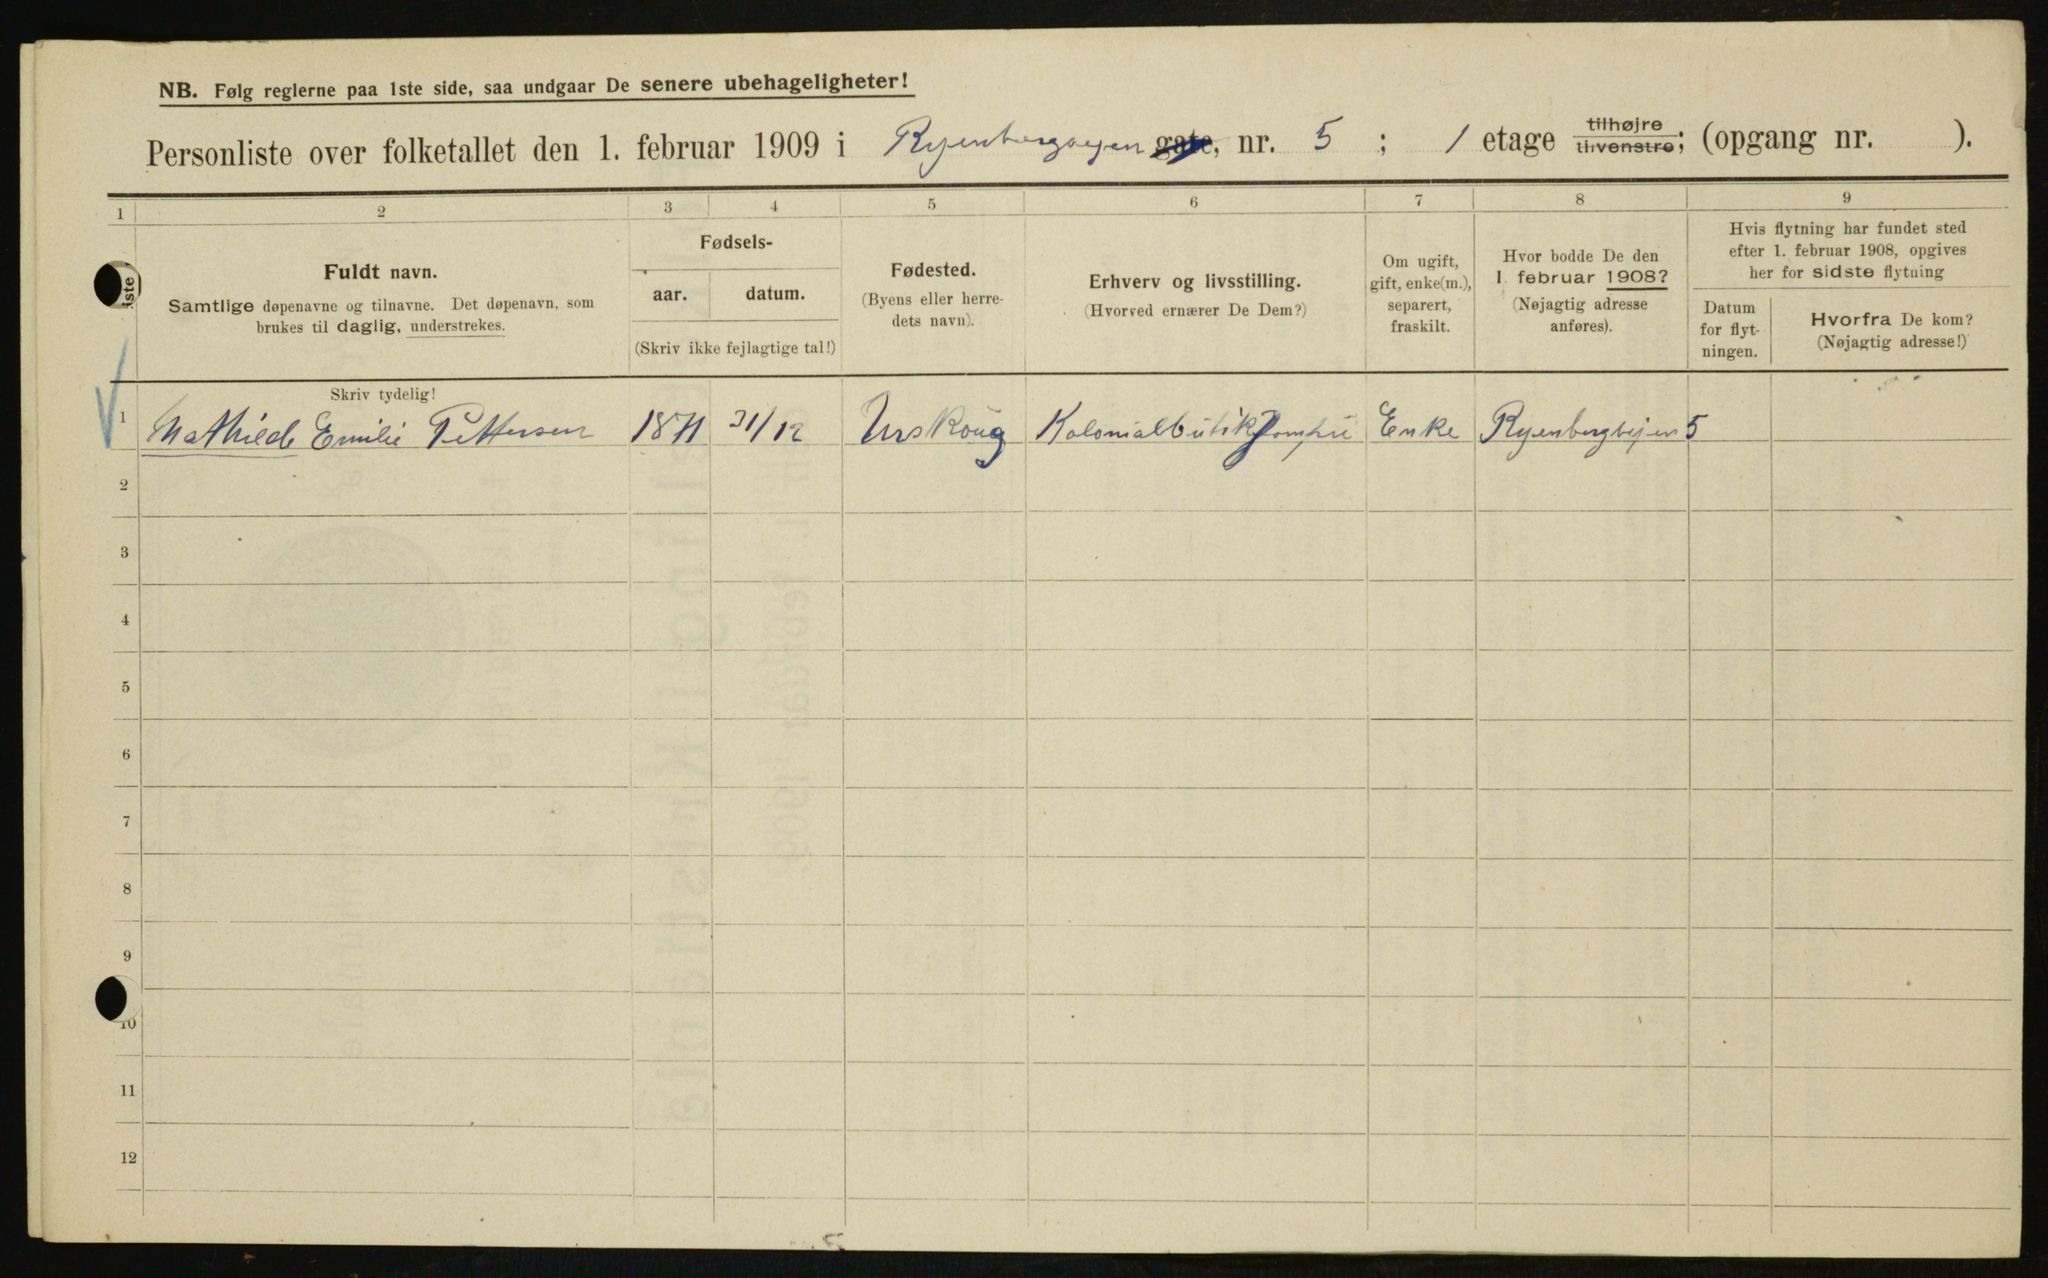 NB. Følg reglerne paa 1ste side, saa undgaar De senere ubehageligheter!
Personliste over folketallet den 1. februar 1909 i Ryenbergvejen gate, nr. 5 ; 1 etage tilhøjre tilvenstre; (opgang nr. ).
1 2 3 4 5 6 7 8 9
Fuldt navn.
Samtlige døpenavne og tilnavne. Det døpenavn, som
brukes til daglig, understrekes.
Fødsels-
aar. datum.
(Skriv ikke fejlagtige tal!)
Fødested.
(Byens eller herre-
dets navn).
Erhverv og livsstilling.
(Hvorved ernærer De Dem?)
Om ugift,
gift, enke(m.),
separert,
fraskilt.
Hvor bodde De den
1. februar 1908?
(Nøjagtig adresse
anføres).
Hvis flytning har fundet sted
efter 1. februar 1908, opgives
her for sidste flytning
Datum
for flyt-
ningen.
Hvorfra De kom?
(Nøjagtig adresse!)
Skriv tydelig!
1 Mathilde Emilie Pettersen 1871 31/12 Urskoug Kolonialbutik Enke Ryenbergvejen 5
2
3
4
5
6
7
8
9
10
11
12